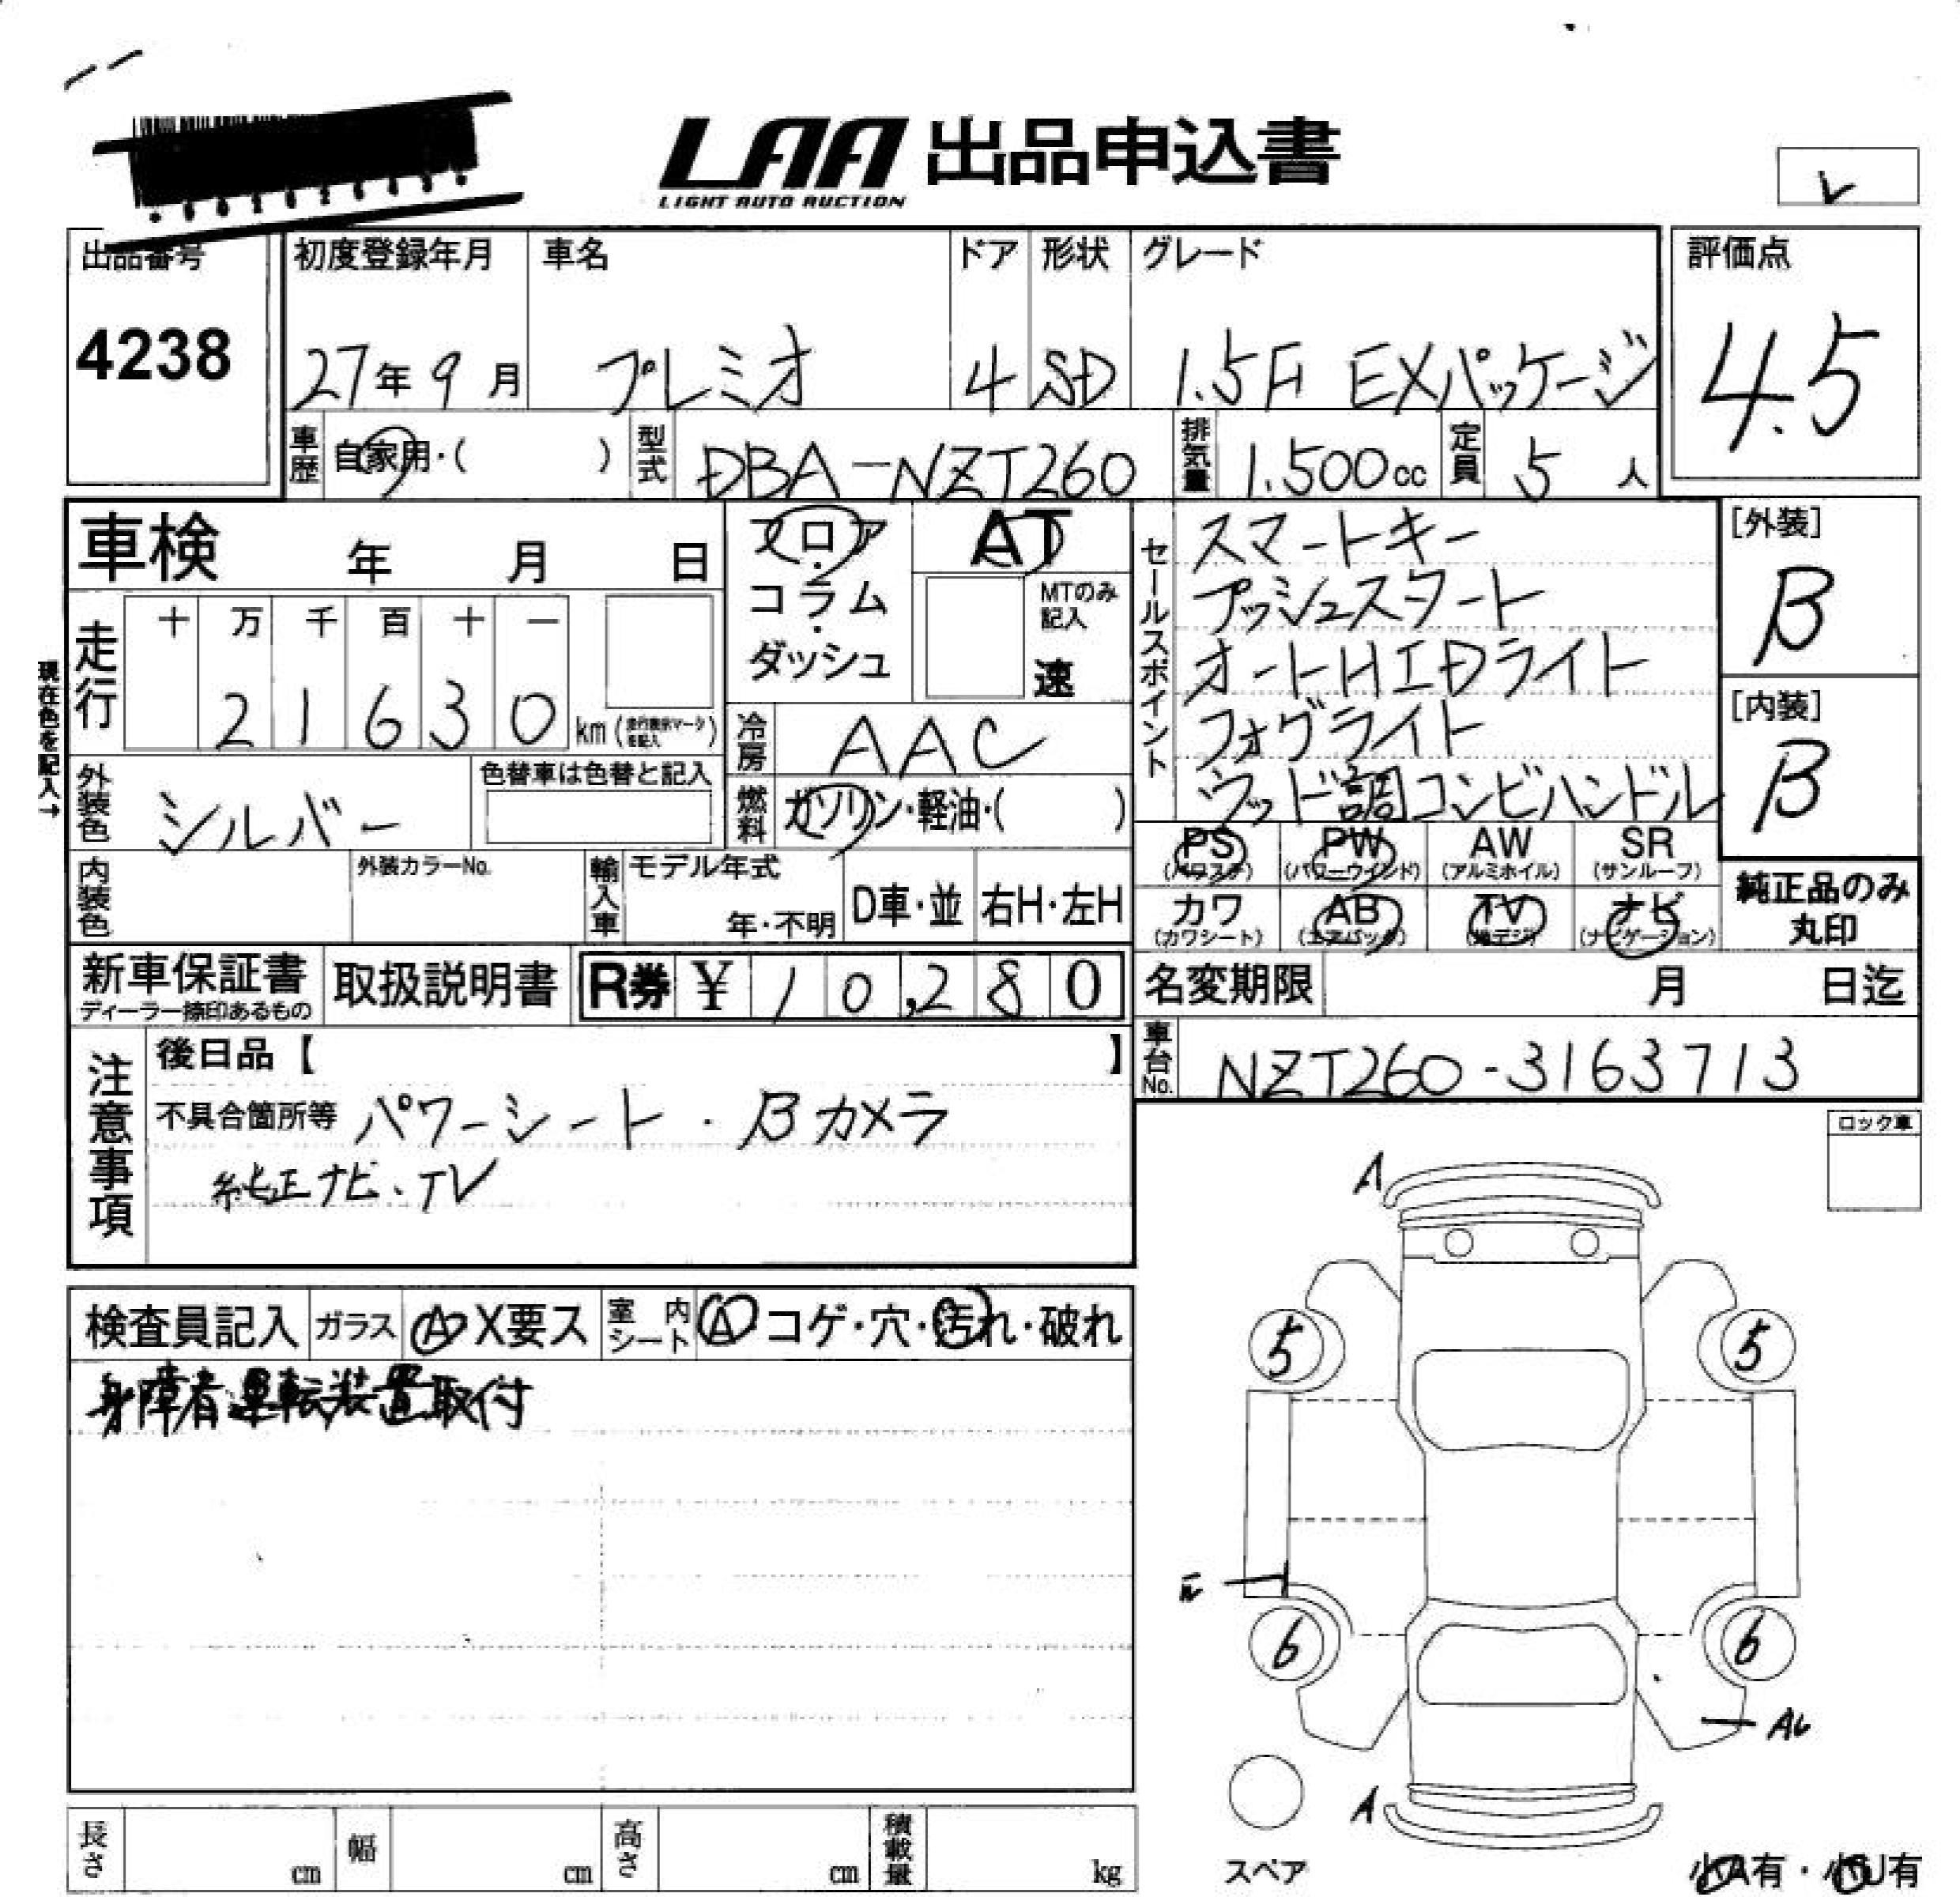 LAA 出品申込書
LIGHT AUTO AUCTION
レ
出品番号 初度登録年月 車名 ドア 形状 グレード 評価点
4238 27年9月 プレミオ 4 SD 1.5F EXパッケージ 4.5
車歴 自家用・( ) 型式 DBA-NZT260 排気量 1.500cc 定員 5人
車検 年 月 日
フロア・コラム・ダッシュ
AT
MTのみ記入
速
現在色を記入→
走行 十 万 千 百 十 一
2 1 6 3 0 km
冷房 AAC
外装色 シルバー 色替車は色替と記入
燃料 ガソリン・軽油・( )
内装色 外装カラーNo. 輸入車 モデル年式 年・不明 D車・並 右H・左H
セールスポイント
スマートキー
プッシュスタート
オートHIDライト
フォグライト
ウッド調コンビハンドル
[外装]
B
[内装]
B
PS PW AW SR
(パワステ) (パワーウインド) (アルミホイル) (サンルーフ)
カワ AB TV ナビ
(カワシート) (エアバッグ) (地デジ) (ナビゲーション)
純正品のみ
丸印
新車保証書 取扱説明書 R券 ¥ 10,280
ディーラー捺印あるもの
名変期限 月 日迄
車台No. NZT260-3163713
注意事項
後日品【 】
不具合箇所等 パワーシート・Bカメラ
純正ナビ・TV
ロック車
検査員記入 ガラス A X要ス 室内シート A コゲ・穴・汚れ・破れ
身障者運転装置取付
A
5 5
6 6
A
スペア
小A有・小U有
長さ cm 幅 cm 高さ cm 積載量 kg